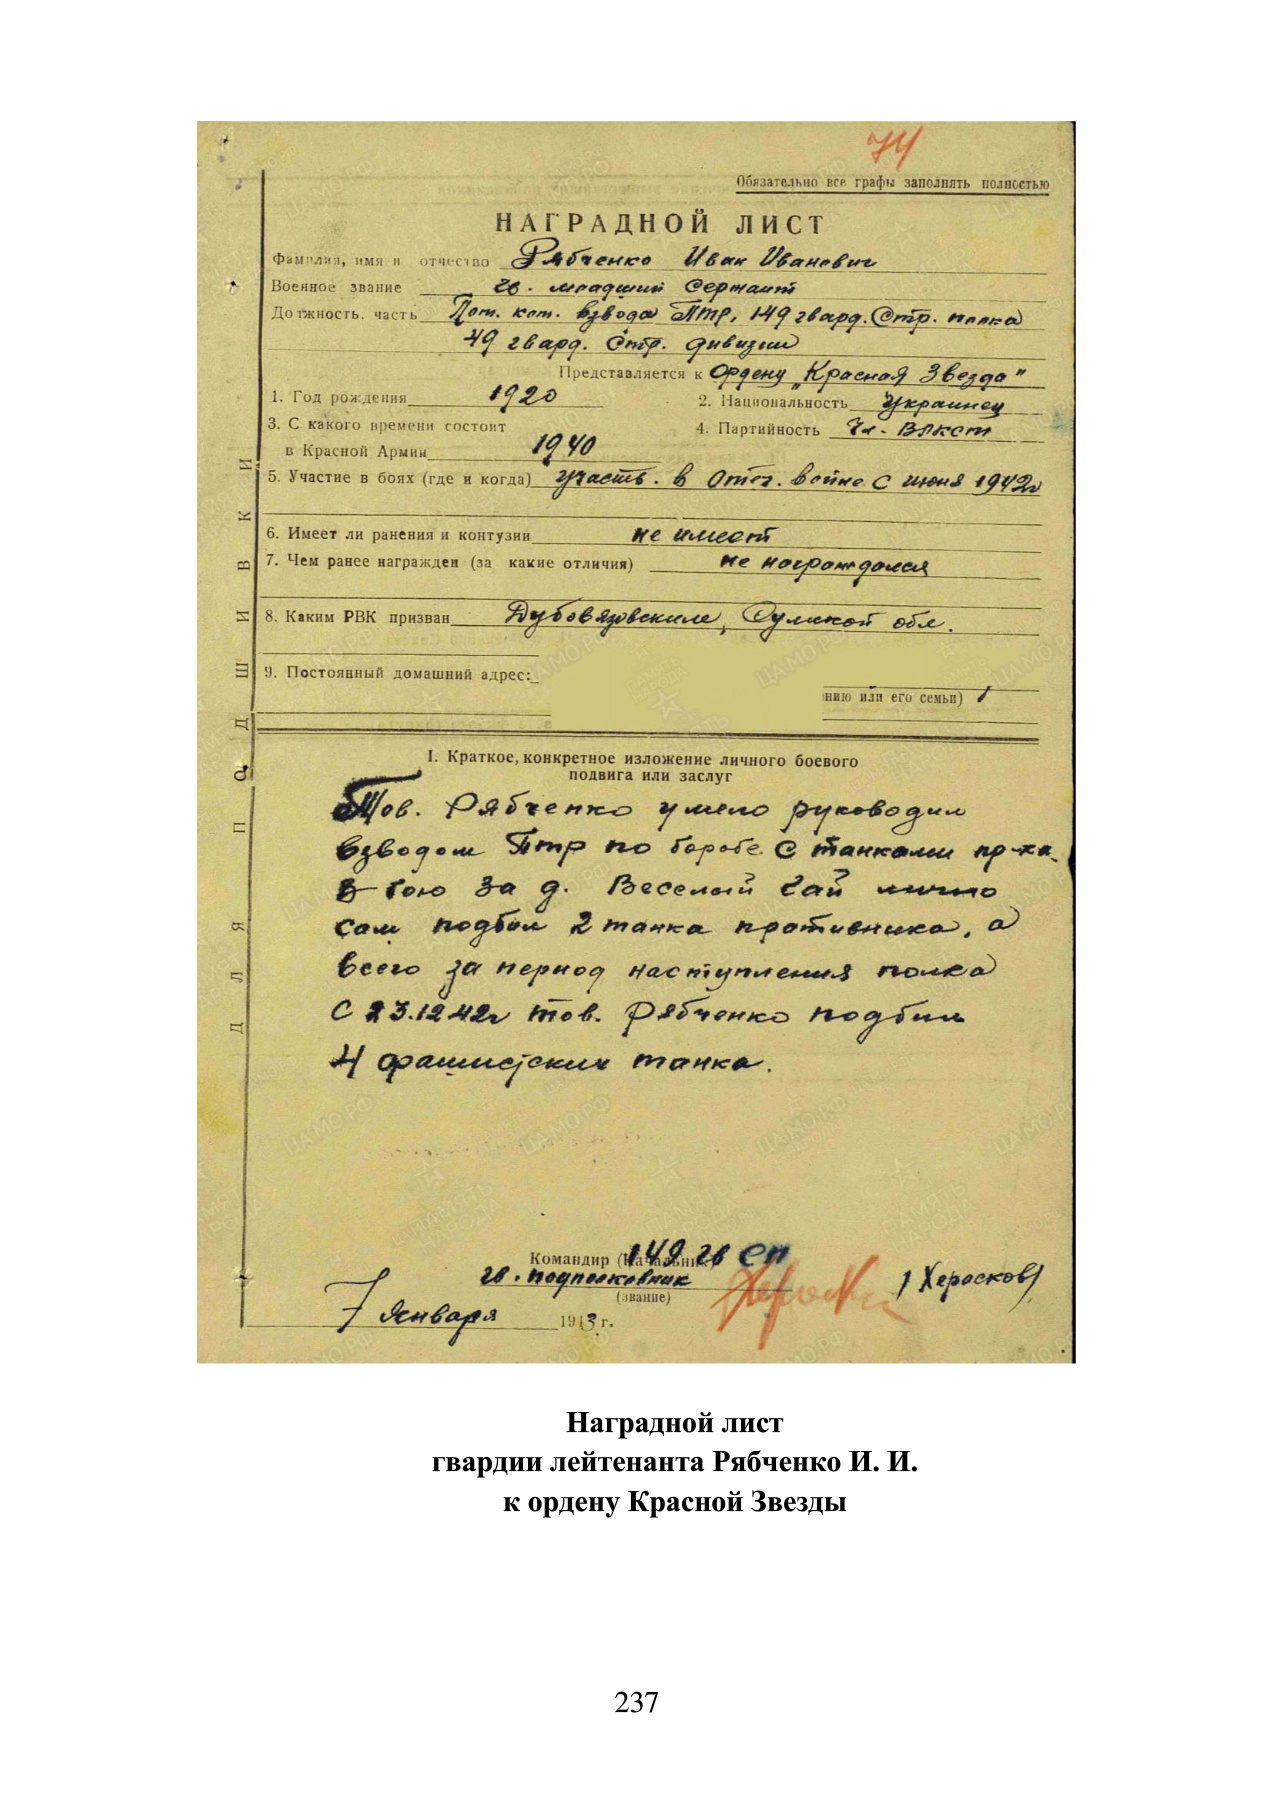 74
Обязательно все графы заполнять полностью
НАГРАДНОЙ ЛИСТ
Фамилия, имя и отчество Рябченко Иван Иванович
Военное звание гв. младший Сержант
Должность, часть Пом. ком. взвода Птр, 149 гвард. Стр. полка
49 гвард. Стр. дивизии
Представляется к Ордену „Красная Звезда"
1. Год рождения 1920 2. Национальность Украинец
3. С какого времени состоит 4. Партийность Чл. ВЛКСМ
в Красной Армии 1940
5. Участие в боях (где и когда) участв. в Отеч. войне с июня 1942г
6. Имеет ли ранения и контузии не имеет
7. Чем ранее награжден (за какие отличия) не награждался
8. Каким РВК призван Дубовязовским, Сумской обл.
9. Постоянный домашний адрес:
нию или его семьи)
ДЛЯ ПОДШИВКИ
I. Краткое, конкретное изложение личного боевого
подвига или заслуг
Тов. Рябченко умело руководил
взводом Птр по борьбе с танками пр-ка.
В бою за д. Веселый Гай лично
сам подбил 2 танка противника, а
всего за период наступления полка
с 23.12.42г тов. Рябченко подбил
4 фашистских танка.
Командир (Начальник) 149 гв сп
гв. подполковник /Херасков/
(звание)
7 января 1943 г.
Наградной лист
гвардии лейтенанта Рябченко И. И.
к ордену Красной Звезды
237